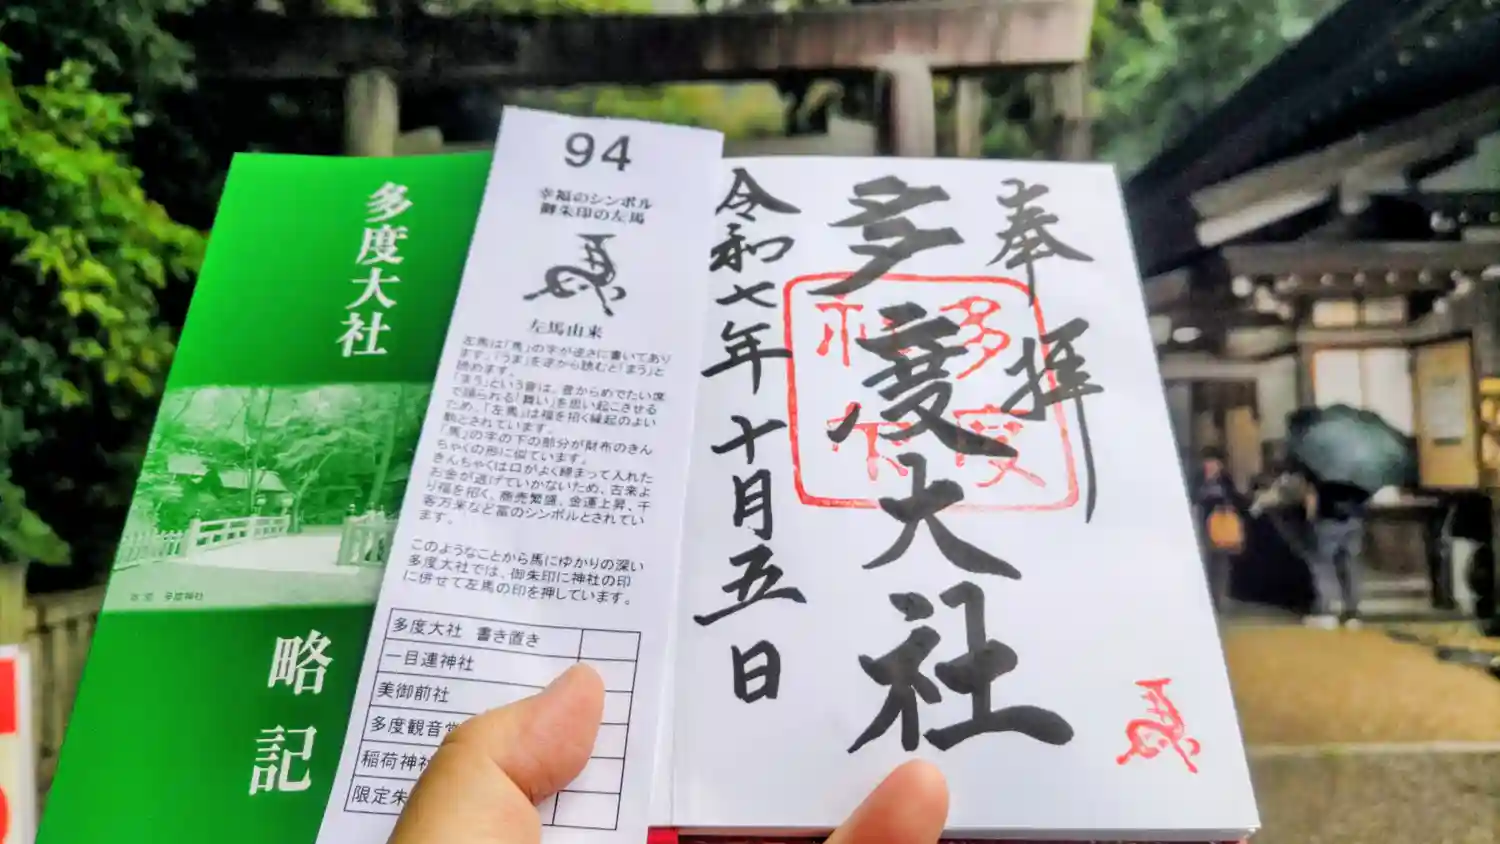 多度大社
略記
94
幸福のシンボル
御朱印の左馬
左馬由来
左馬は「馬」の字が逆さに書いてあり
ます。「うま」を逆から読むと「まう」と
読めます。
「まう」という音は、昔からめでたい席
で踊られる「舞い」を思い起こさせる
ため、「左馬」は福を招く縁起のよい
駒とされています。
「馬」の字の下の部分が財布のきん
ちゃくの形に似ています。
きんちゃくは口がよく締まって入れた
お金が逃げていかないため、古来よ
り福を招く、商売繁盛、金運上昇、千
客万来など富のシンボルとされてい
ます。
このようなことから馬にゆかりの深い
多度大社では、御朱印に神社の印
に併せて左馬の印を押しています。
多度大社 書き置き
一目連神社
美御前社
多度観音堂
稲荷神社
限定朱
奉拝
多度大社
令和七年十月五日
多度